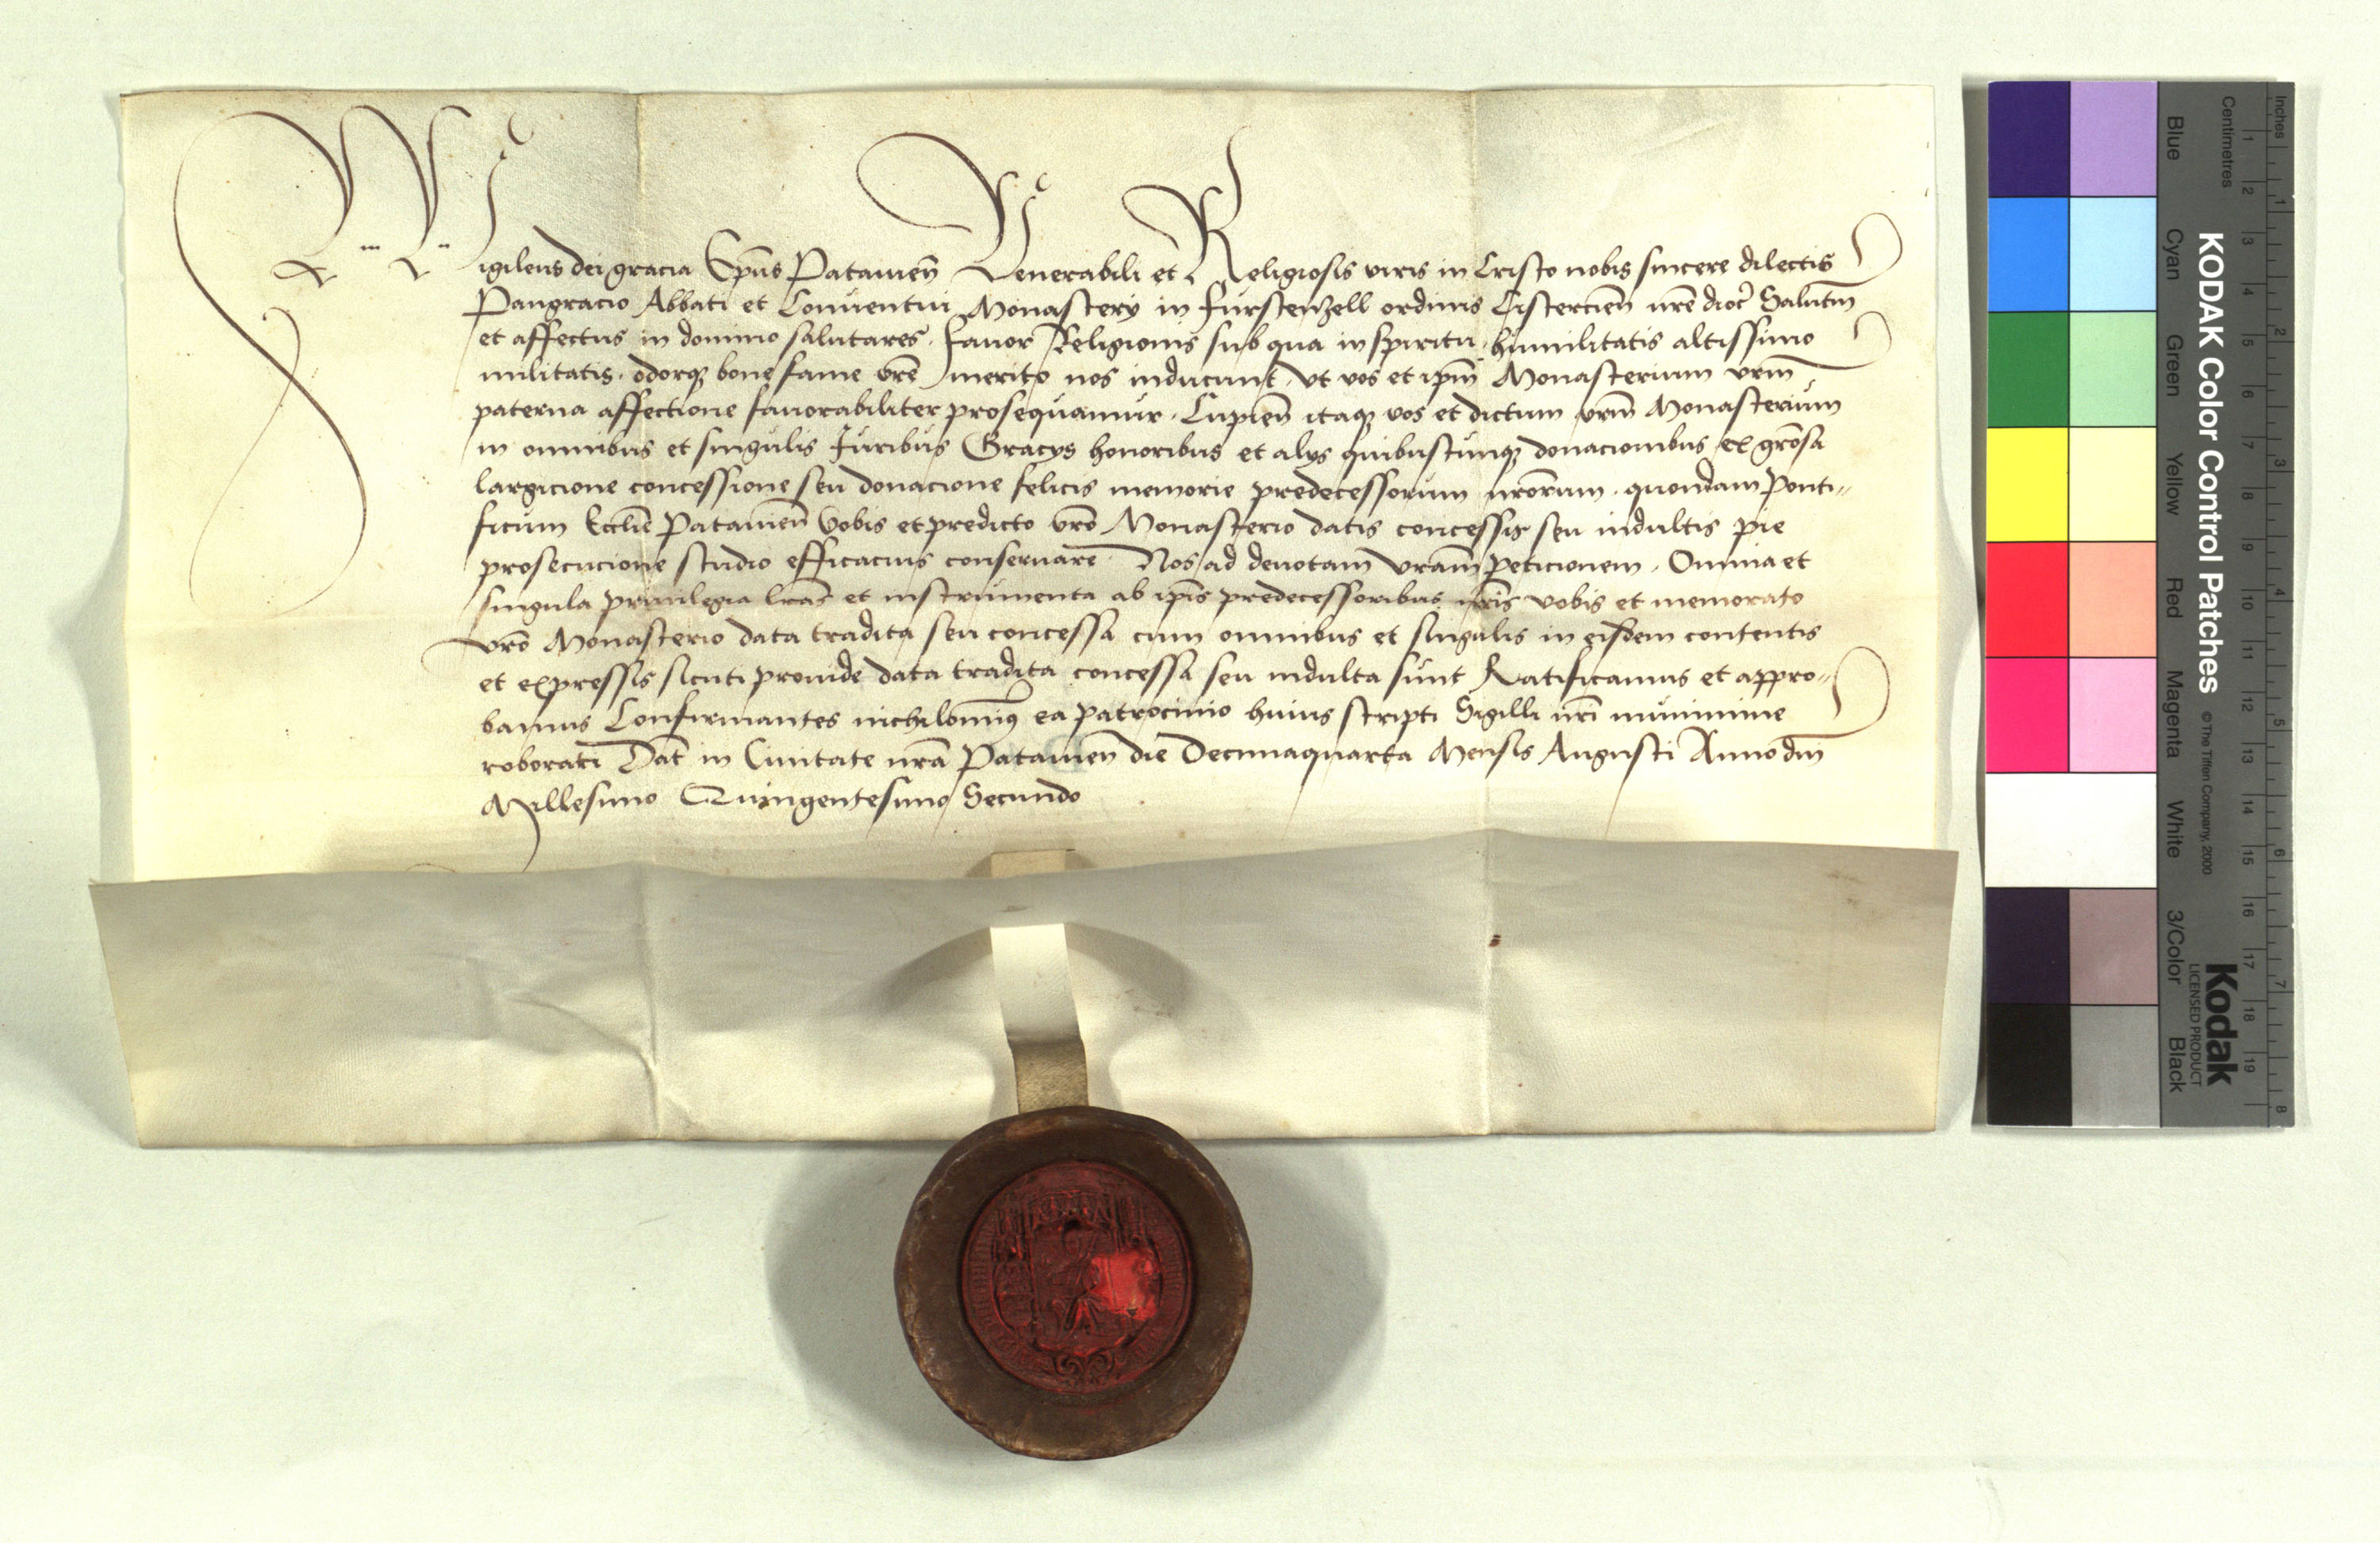 Wigileus dei gracia Ep̄us Patauien̄ Venerabili et Religiosis viris in Cristo nobis sincere dilectis
Pangracio Abbati et Conuentui Monastery in Furstenzell ordinis Cistercien̄ nr̄e dioc̄ Salutm̄
et affectus in domino salutares. Fauor Religionis sub qua in spiritu humilitatis altissimo
militatis. odorq; bone fame vr̄e merito nos inducunt. vt vos et ip̄m Monasterium vrm̄
paterna affectione fauorabiliter prosequamur. Cupien̄ itaq; vos et dictum vrm̄ Monasterium
in omnibus et singulis Juribus Gracys honoribus et alys quibuscunq; donacionibus ex gr̄osa
largicione concessione seu donacione felicis memorie predecessorum nr̄orum. quondam Ponti„
ficum Eccl̄ie Patauien̄ vobis et predicto vr̄o Monasterio datis concessis seu indultis pie
prosecucione studio efficacius conseruare Nos ad deuotam vr̄am peticionem. Omnia et
singula priuilegia lr̄as et instrumenta ab ip̄is predecessoribus nr̄is vobis et memorato
vr̄o Monasterio data tradita seu concessa cum omnibus et singulis in eisdem contentis
et expressis sicuti prouide data tradita concessa seu indulta sunt Ratificamus et appro„
bamus Confirmantes nichilomin9 ea patrocinio huius scripti Sigilli nr̄i munimine
roborati Dat̄ in Ciuitate nr̄a Patauien̄ die Decimaquarta Mensis Augusti Anno dm̄
Millesimo Quingentesimo Secundo
KODAK Color Control Patches © The Tiffen Company, 2000
Kodak
LICENSED PRODUCT
Blue Cyan Green Yellow Red Magenta White 3/Color Black
Centimetres 1 2 3 4 5 6 7 8 9 10 11 12 13 14 15 16 17 18 19
Inches 1 2 3 4 5 6 7 8